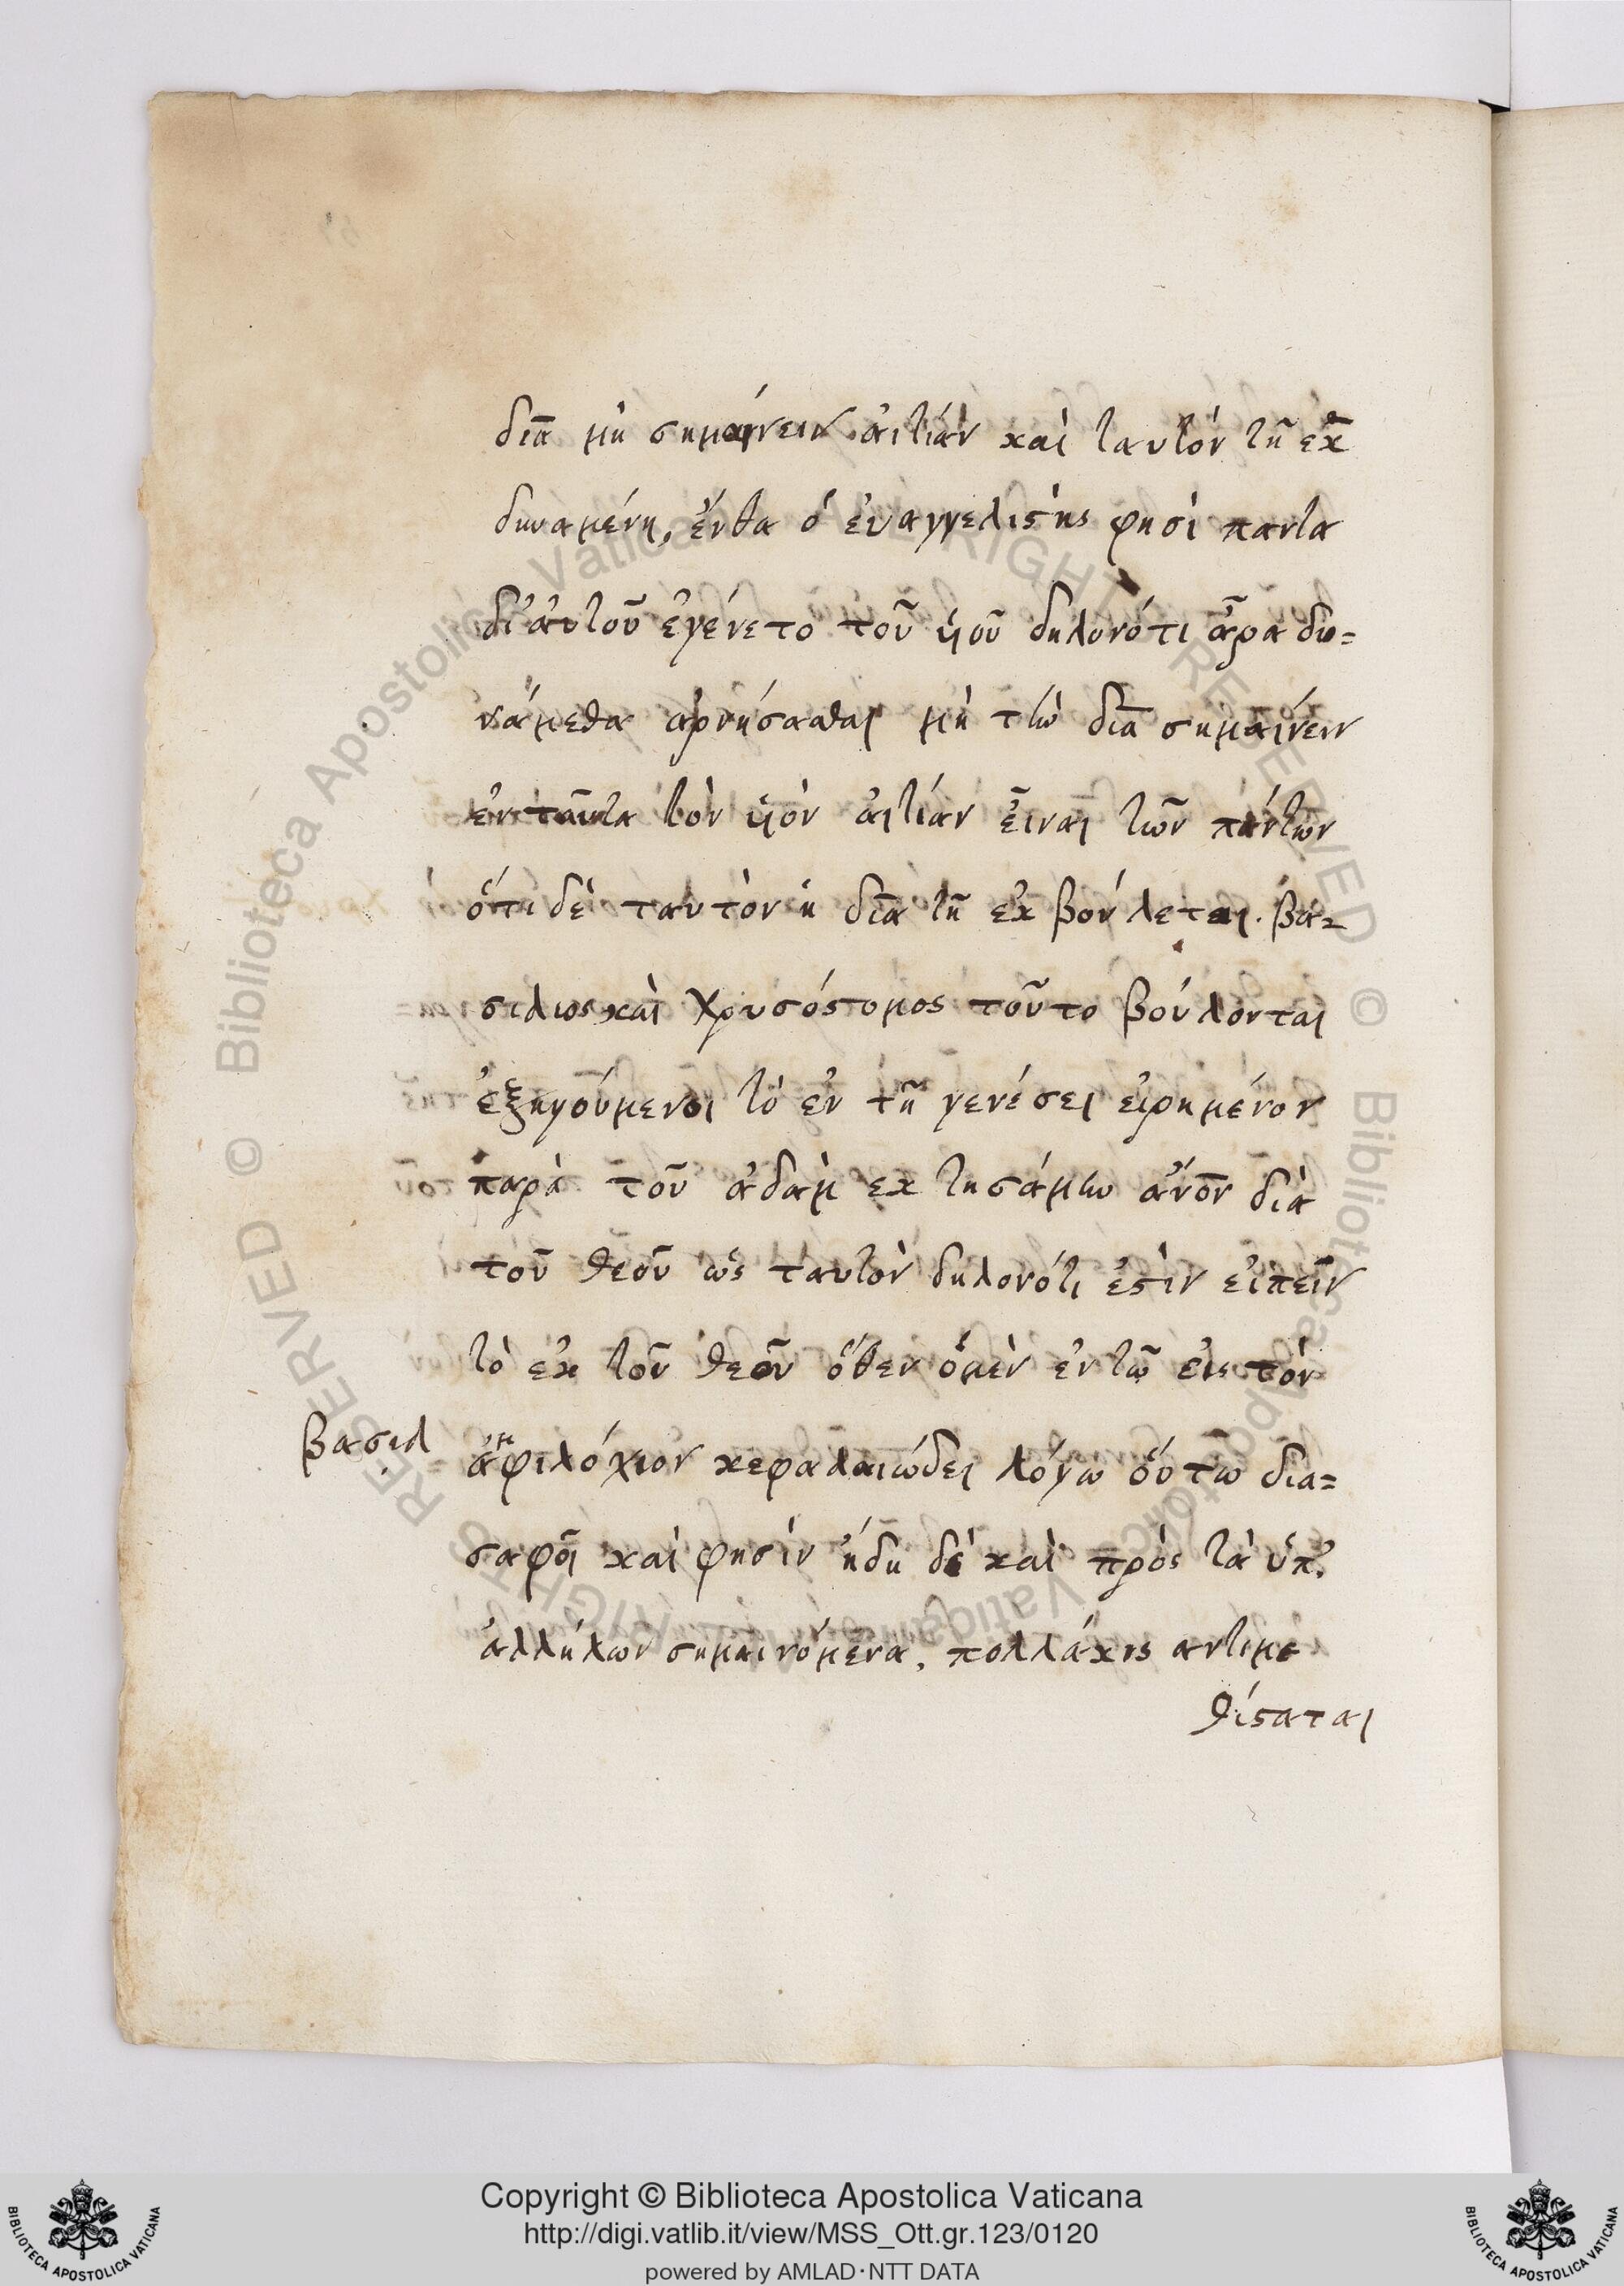 διὰ μὴ σημαίνειν ἀιτίαν καὶ ταυτὸν τῆ ἐκ
δυναμένη, ἔνθα ὁ ἐυαγγελιστὴς φησὶ παντα
δἰ ἀυτοῦ ἐγένετο τοῦ ὑιοῦ δηλονότι ἆρα δυ=
νάμεθα ἀρνήσασθαι μὴ τὴν διὰ σημαίνειν
ἐνταῦτα τὸν ὑιὸν ἀιτίαν εἶναι τῶν πάντων
ὅτι δὲ ταυτὸν ἡ διὰ τῆ ἐκ βούλεται. βα=
σιλιος καὶ χρυσόστομος τοῦτο βούλονται
ἐξηγούμενοι τὸ ἐν τῆ γενέσει ἐιρημένον
παρὰ τοῦ ἀδὰμ ἐκτησάμην ἄνον διὰ
τοῦ θεοῦ ὡς ταυτὸν δηλονότι ἐστὶν ἐιπεῖν
τὸ ἐκ τοῦ θεοῦ ὅθεν ὁ μὲν ἐν τῶ ἐις τὸν
βασιλ
ἀμφιλόχιον κεφαλαιώδει λόγω ὅυτω δια=
σαφοῖ καὶ φησὶν ἤδη δὲ καὶ πρὸς τὰ ὑπ'
ἀλλήλων σημαινόμενα, πολλάκις αντιμε
θίσταται
Copyright © Biblioteca Apostolica Vaticana
http://digi.vatlib.it/view/MSS_Ott.gr.123/0120
powered by AMLAD·NTT DATA